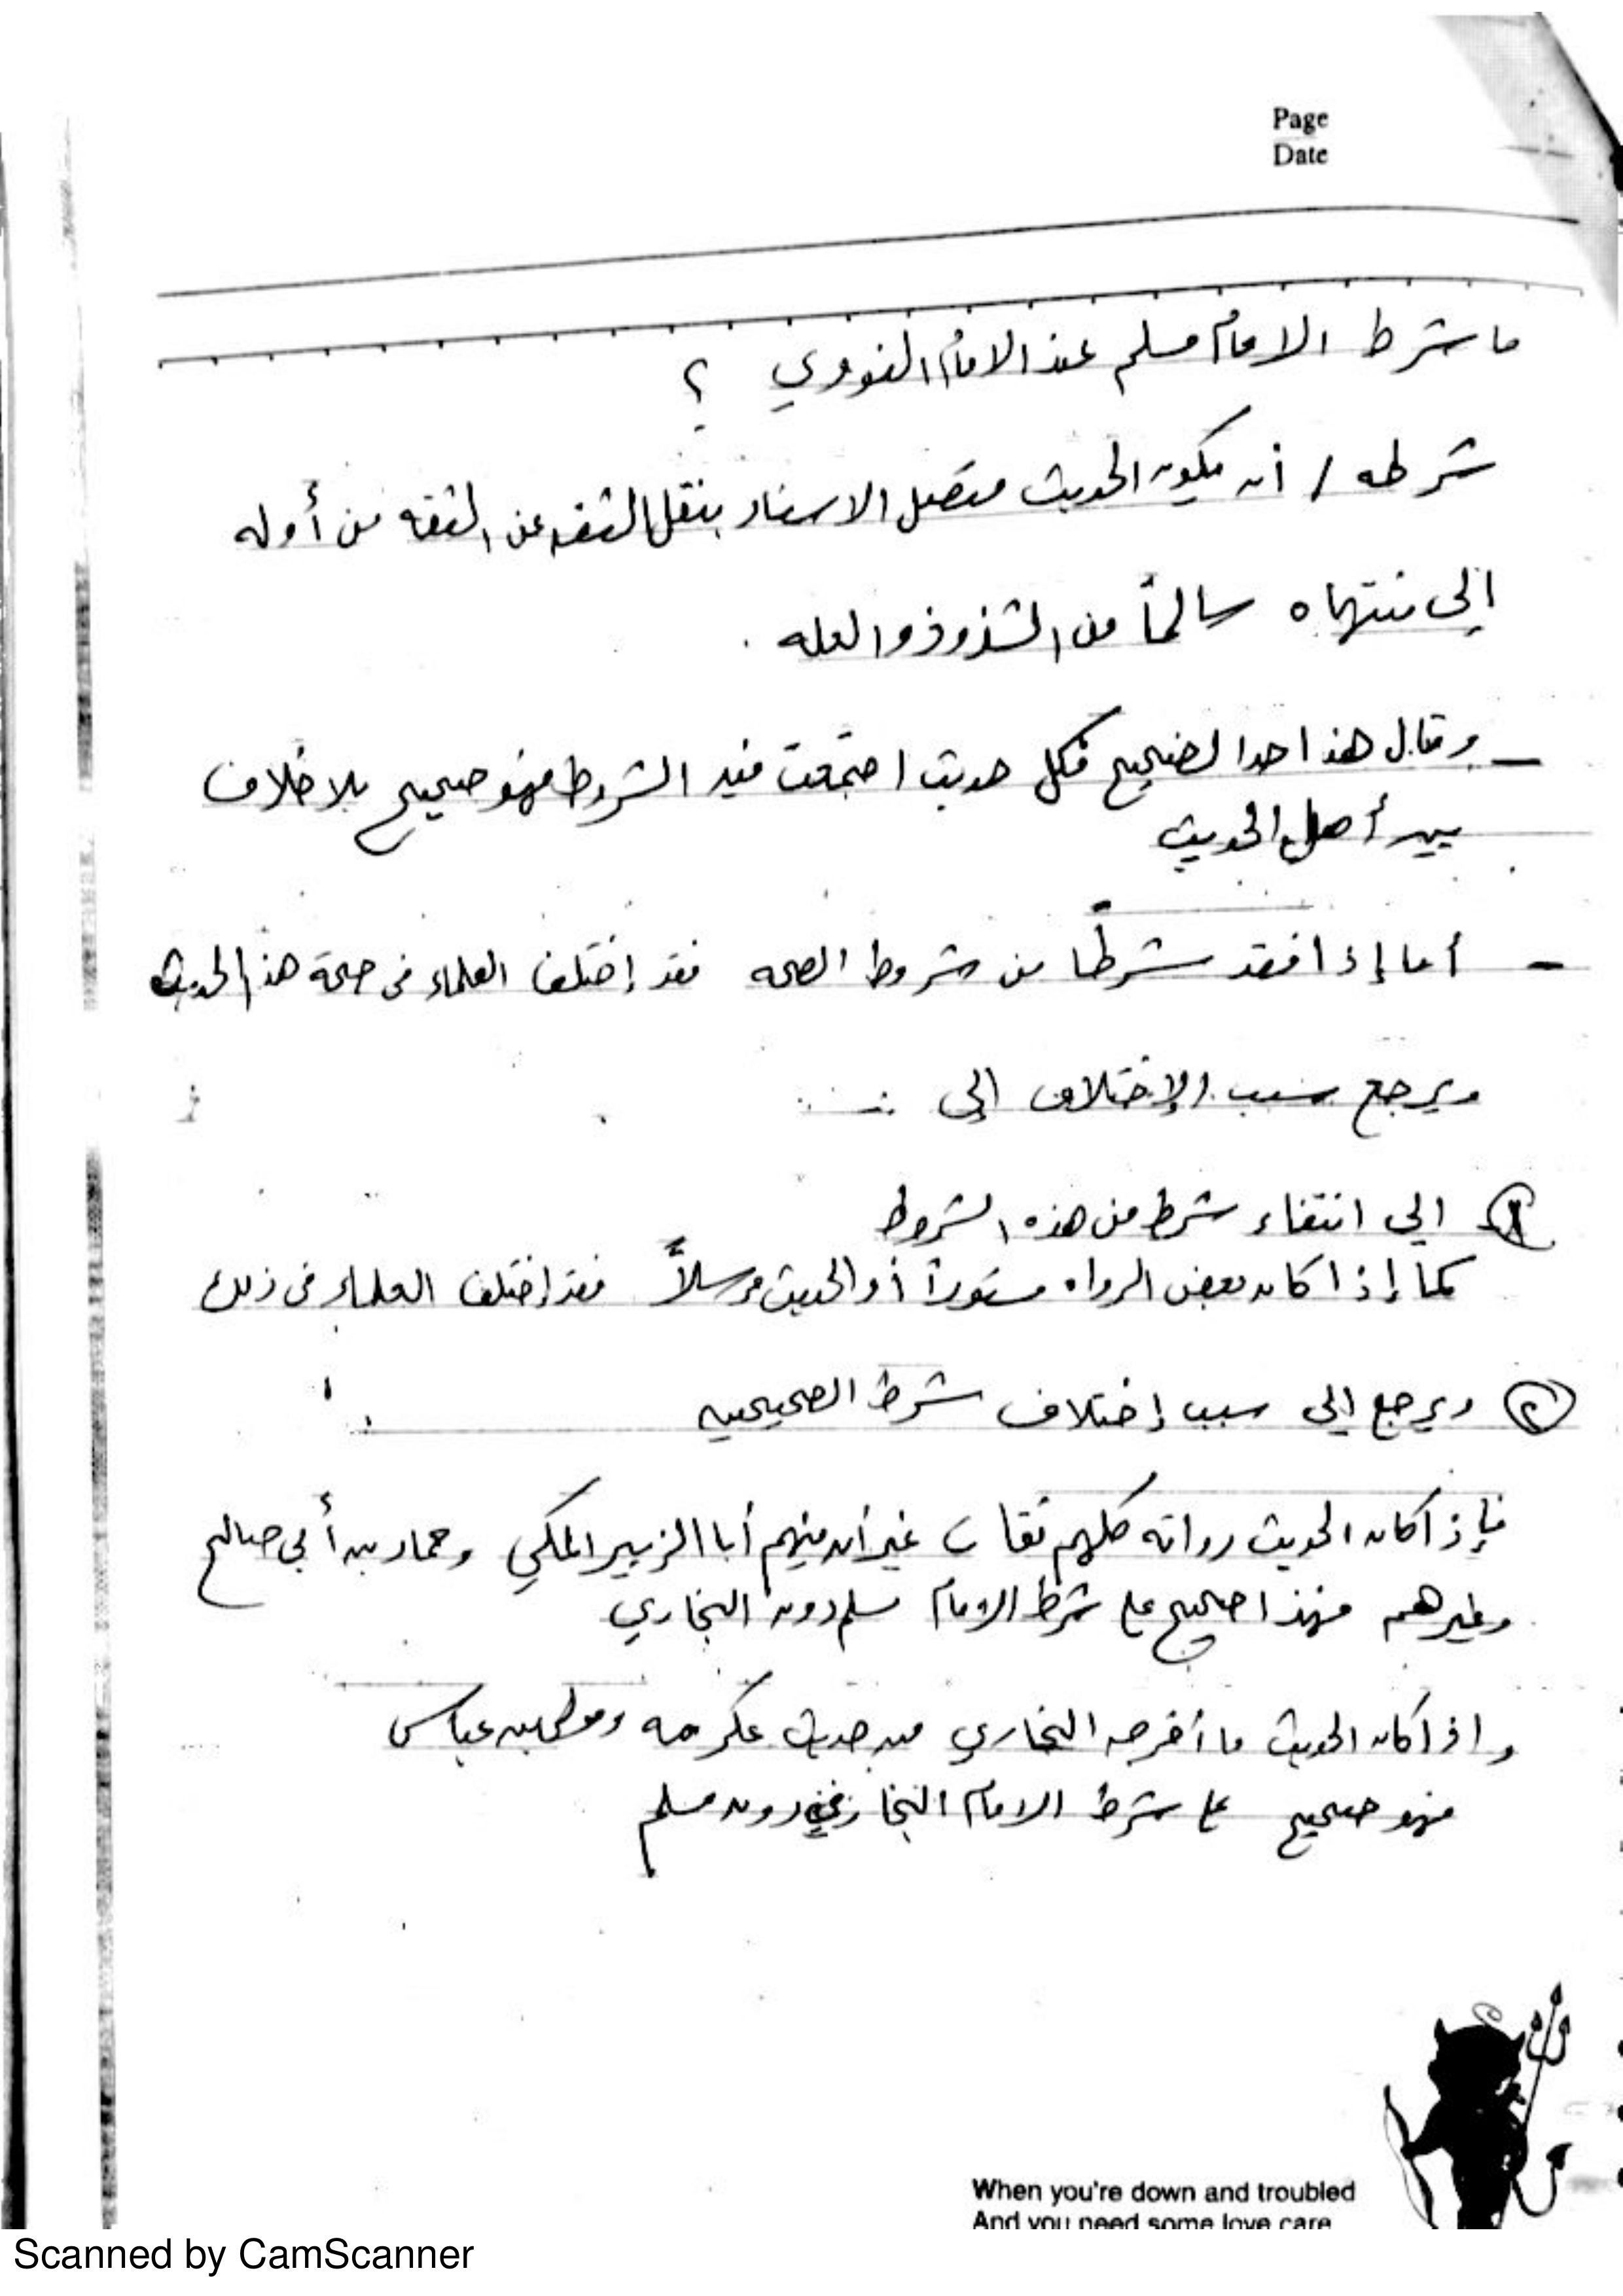 Page
Date
ما شرط الامام مسلم عند الامام النووي ؟
شرطه / أن يكون الحديث متصل الاسناد بنقل الثقه عن الثقه من أوله
إلى منتهاه سالماً من الشذوذ والعله .
- وقال هذا حد الصحيح فكل حديث اجتمعت فيه الشروط فهو صحيح بلا خلاف
بين أهل الحديث
- أما إذا فقد شرطًا من شروط الصحه فقد إختلف العلماء فى صحة هذا الحديث
ويرجع سبب الإختلاف إلى
١ الى انتفاء شرط من هذه الشروط
كما إذا كان بعض الرواه مستوراً أو الحديث مرسلاً فقد إختلف العلماء فى ذلك
٢ ويرجع إلى سبب إختلاف شرط الصحيحين
فإذا كان الحديث رواته كلهم ثقات غير أن منهم أبا الزبير المكي وحماد بن أبي صالح
وغيرهم فهذا صحيح على شرط الامام مسلم دون البخاري
واذا كان الحديث ما أخرجه البخاري من حديث عكرمه عباس
فهو صحيح على شرط الامام البخاري دون مسلم
When you're down and troubled
And you need some love care
Scanned by CamScanner